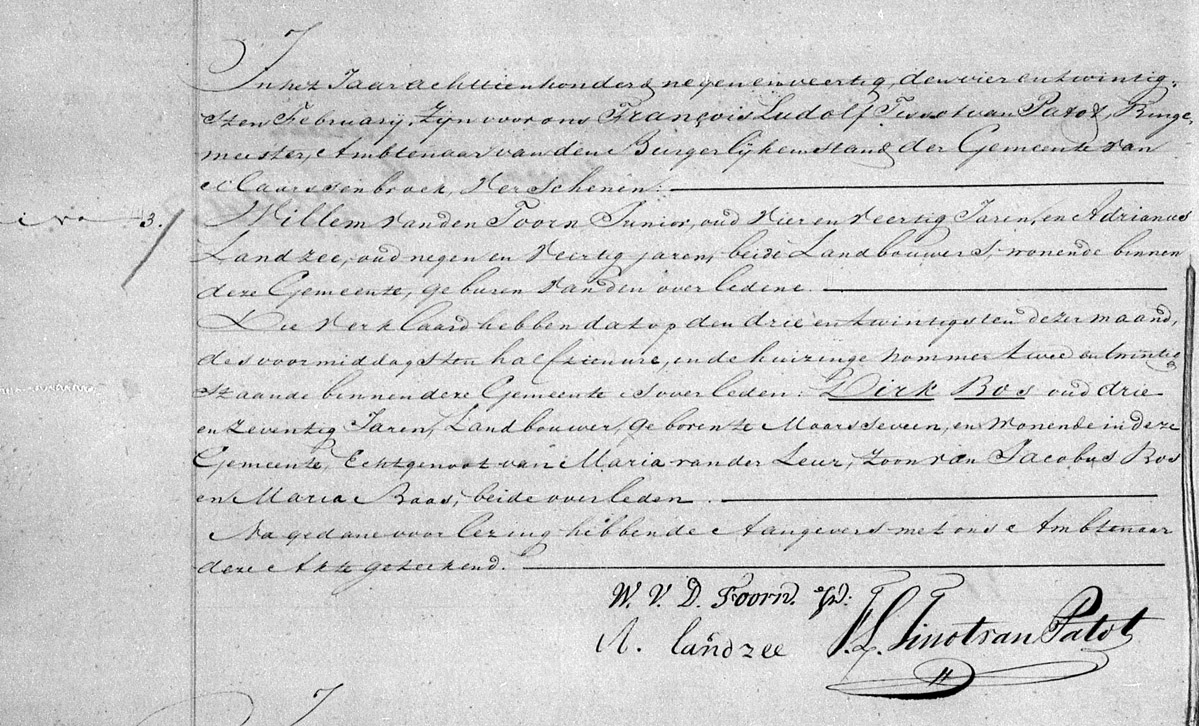 In het Jaar achttienhonderd negen en veertig, den vier en twintig-
sten February, zyn voor ons François Ludolf Tissot van Patot, Burge-
meester, Ambtenaar van den Burgerlijken stand der Gemeente van
Maarssenbroek, Verschenen:
No 3. Willem van den Toorn Junior, oud Vier en Veertig Jaren, en Adrianus
Landzee, oud negen en Veertig jaren, beide Landbouwers, wonende binnen
deze Gemeente, geburen van den overledene.
Die Verklaard hebben dat op den drie en twintigsten dezer maand,
des voormiddags ten half tien ure, in de huizinge nommer twee en twintig
staande binnen deze Gemeente is overleden: Dirk Bos oud drie
en Zeventig Jaren, Landbouwer, geboren te Maarsseveen, en Wonende in deze
Gemeente, Echtgenoot van Maria van der Leur, zoon van Jacobus Bos
en Maria Baas, beide overleden.
Na gedane voorlezing hebben de Aangevers met ons Ambtenaar
deze Akte geteekend.
W. V. D. Toorn. Jr:
A. Landzee F. L. Tissot van Patot